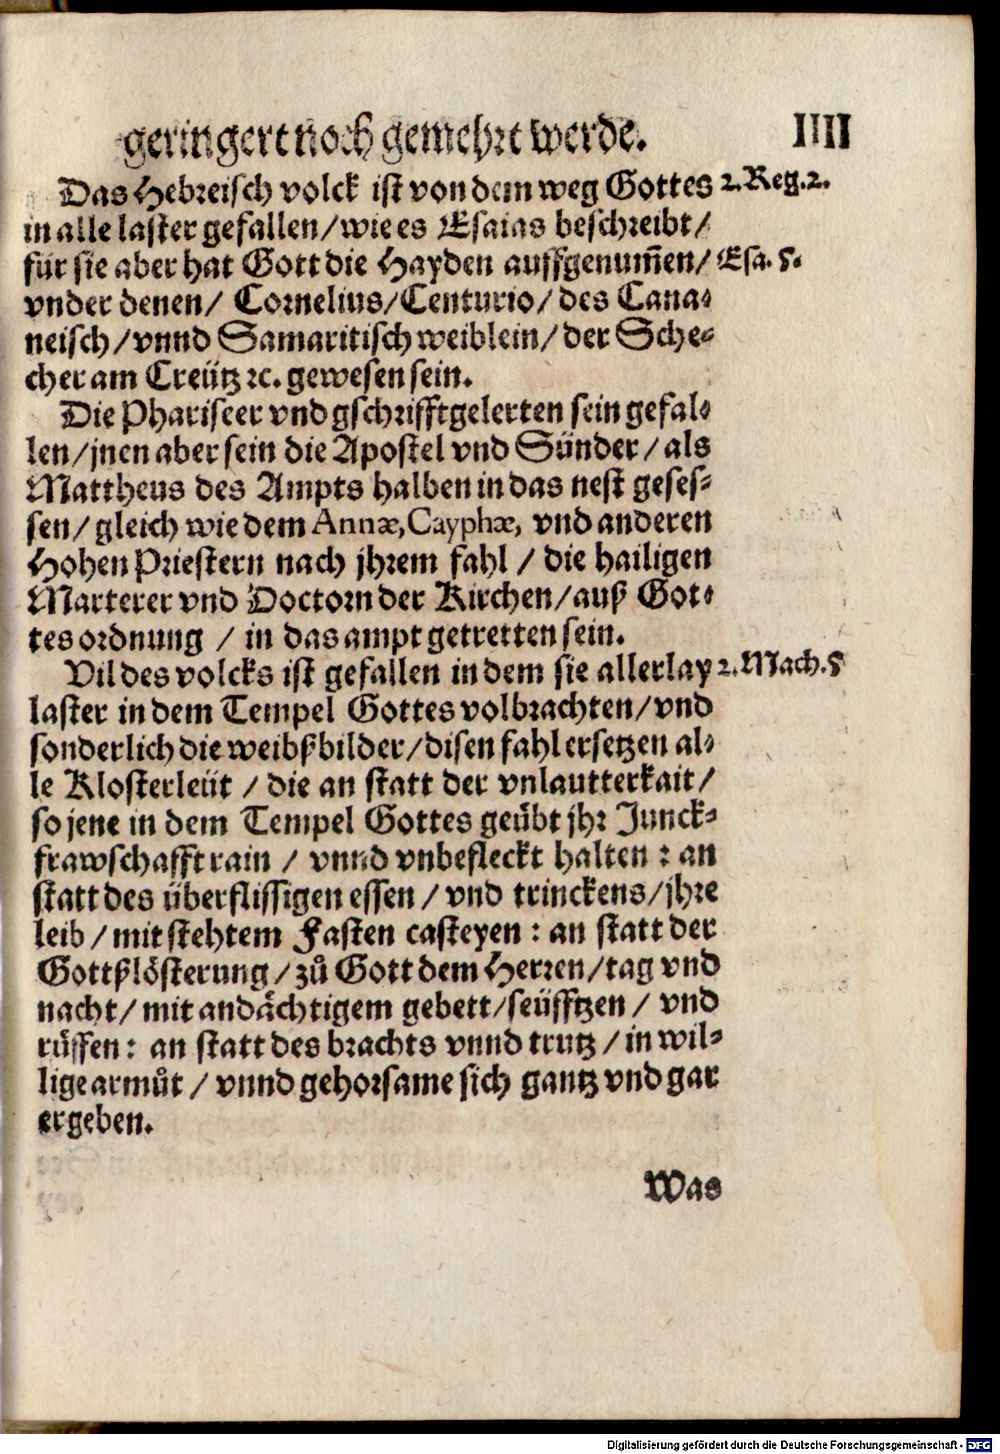 geringert noch gemehrt werde. IIII
Das Hebreisch volck ist von dem weg Gottes 2. Reg. 2.
in alle laster gefallen/wie es Esaias beschreibt/
für sie aber hat Gott die Hayden auffgenum̃en/ Esa. 5.
vnder denen/ Cornelius/Centurio/ des Cana-
neisch/vnnd Samaritisch weiblein/ der Sche-
cher am Creütz ꝛc. gewesen sein.
Die Phariseer vnd gschrifftgelerten sein gefal-
len/jnen aber sein die Apostel vnd Sünder/ als
Mattheus des Ampts halben in das nest geses-
sen/ gleich wie dem Annæ, Cayphæ, vnd anderen
Hohen Priestern nach jhrem fahl / die hailigen
Marterer vnd Doctorn der Kirchen/auß Got-
tes ordnung / in das ampt getretten sein.
Vil des volcks ist gefallen in dem sie allerlay 2. Mach. 5
laster in dem Tempel Gottes volbrachten/vnd
sonderlich die weibßbilder/disen fahl ersetzen al-
le Klosterleüt / die an statt der vnlautterkait/
so jene in dem Tempel Gottes geübt jhr Junck-
frawschafft rain / vnnd vnbefleckt halten : an
statt des überflissigen essen / vnd trinckens/jhre
leib / mit stehtem Fasten casteyen : an statt der
Gottßlösterung / zů Gott dem Herren/tag vnd
nacht/ mit andächtigem gebett/seüfftzen / vnd
rüffen : an statt des brachts vnnd trutz / in wil-
lige armůt / vnnd gehorsame sich gantz vnd gar
ergeben.
Was
Digitalisierung gefördert durch die Deutsche Forschungsgemeinschaft - DFG